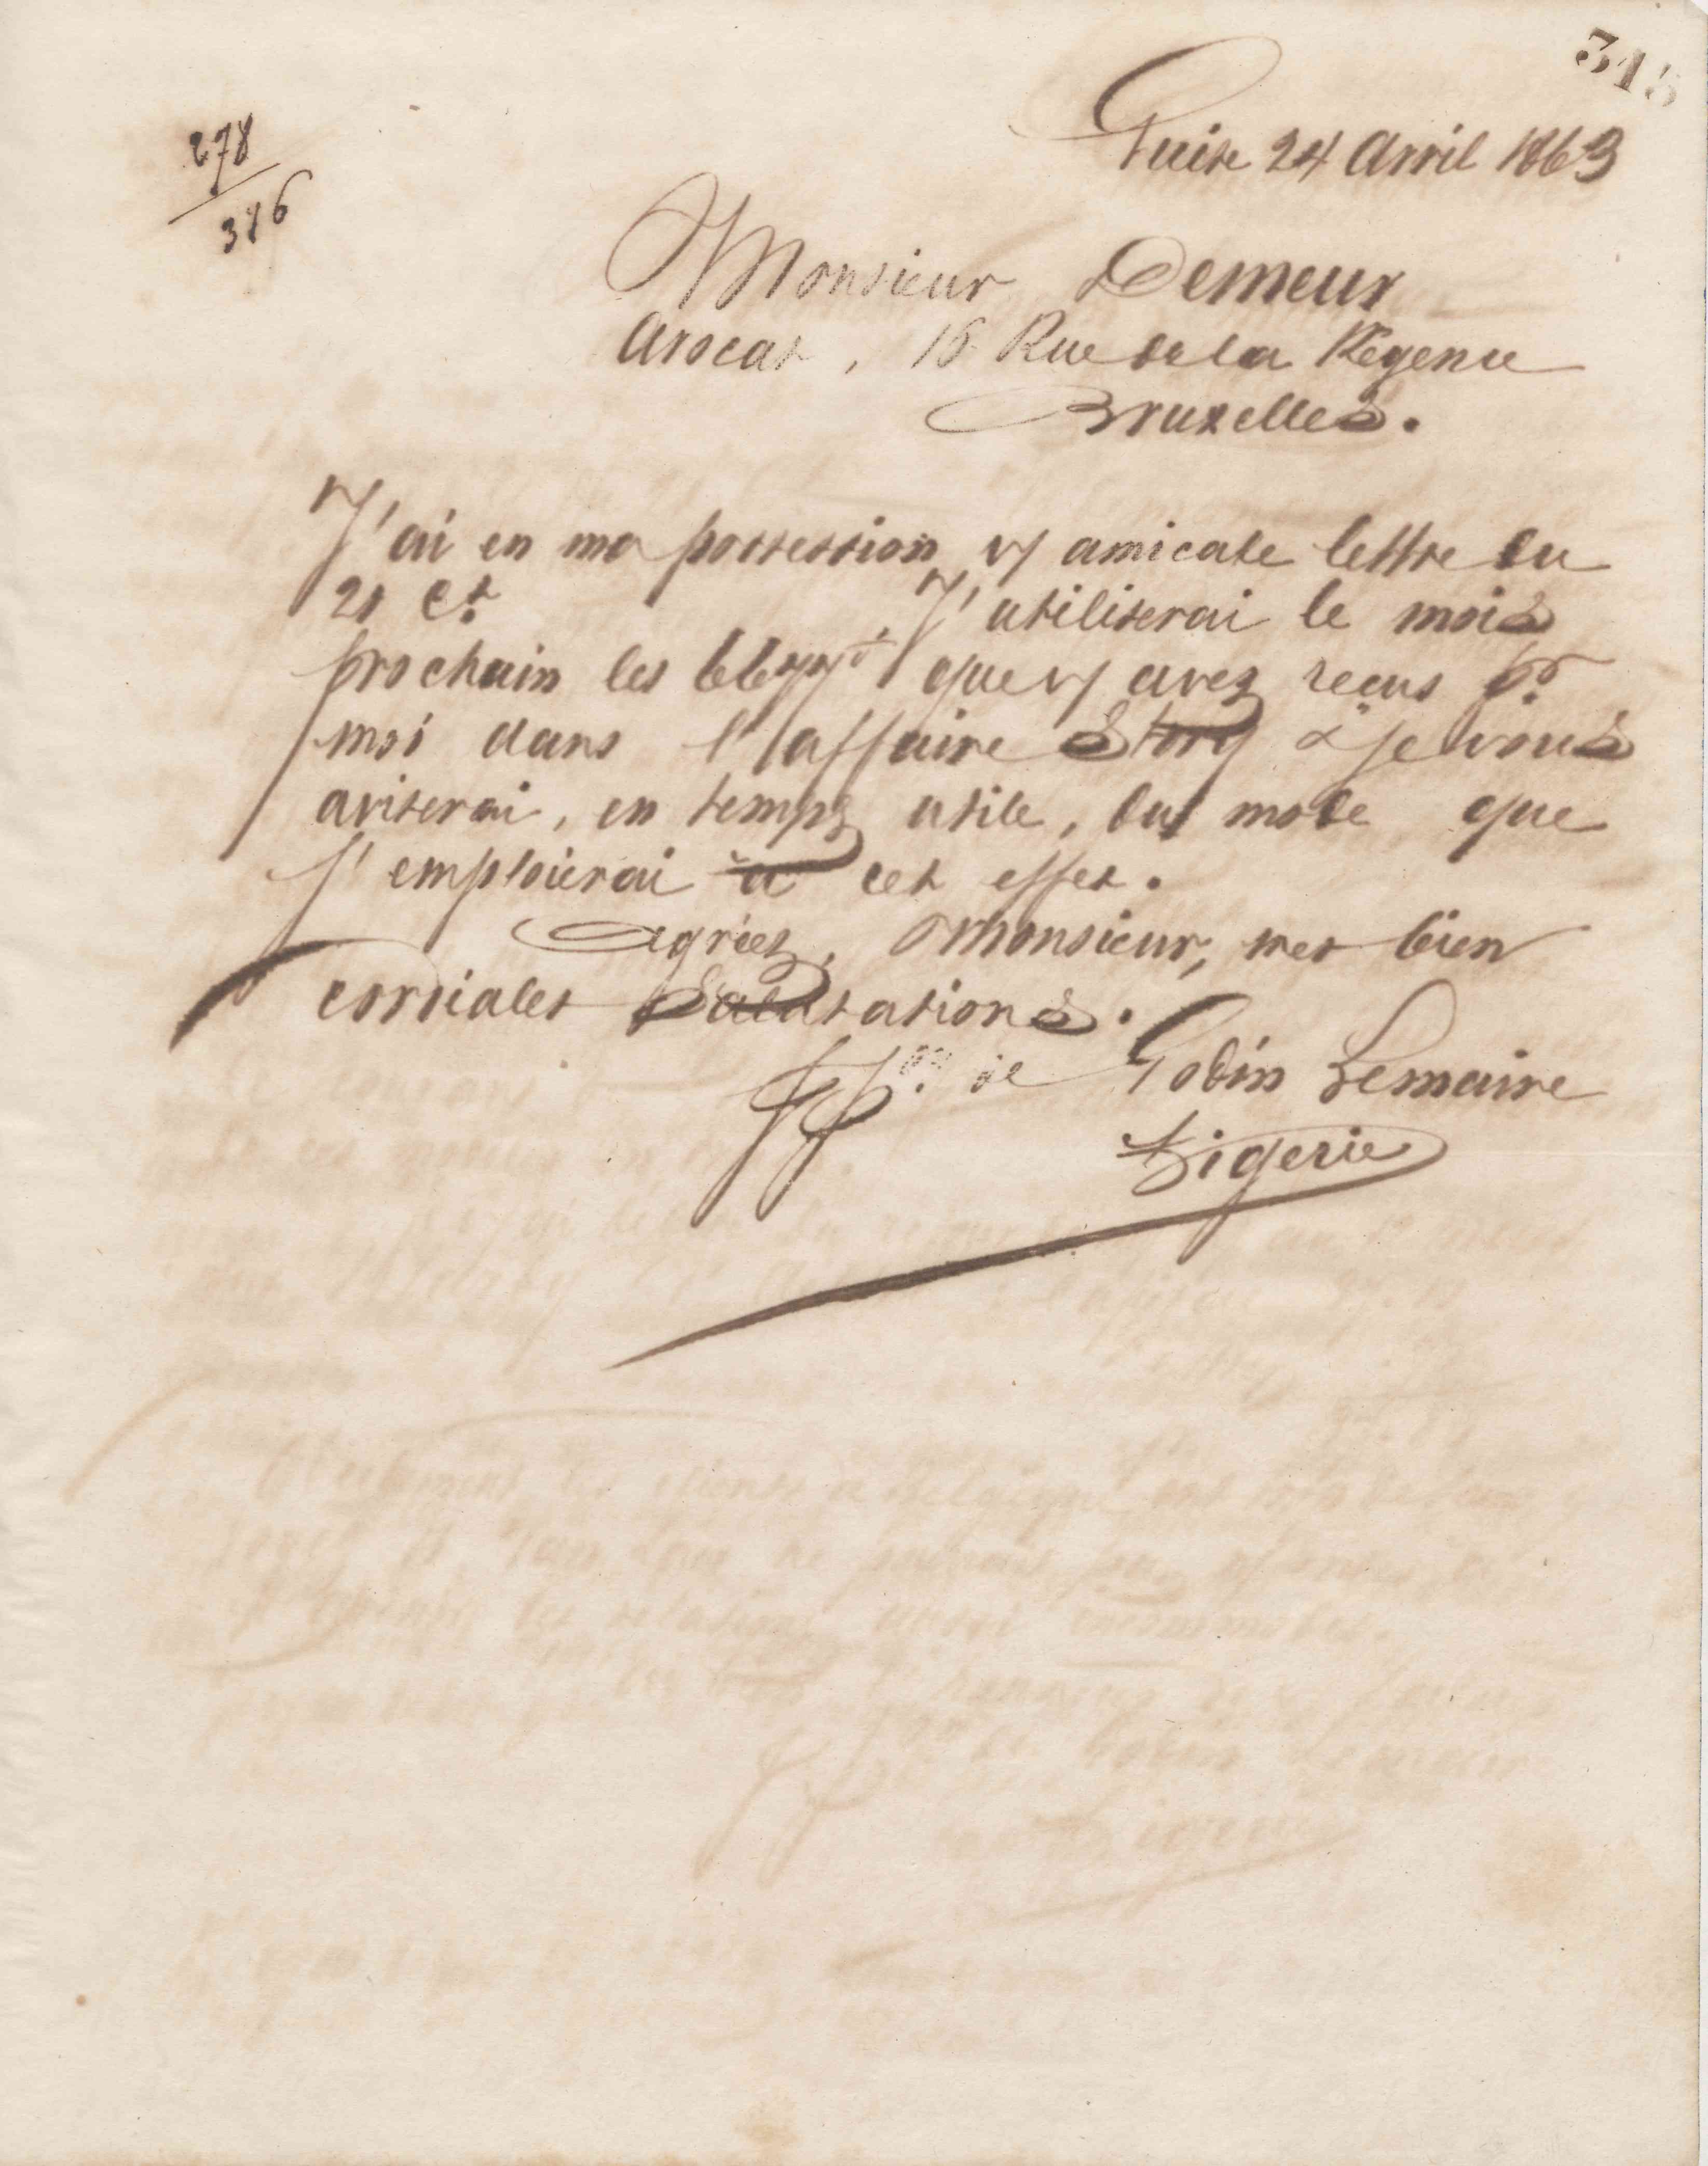 315
Guise 24 Avril 1863
278
386
Monsieur Demeur
Avocat, 16 Rue de la Régence
Bruxelles.
J'ai en ma possession vs amicale lettre du
21 Ct. J'utiliserai le mois
prochain les que vs avez reçus pr.
moi dans l'affaire Story & je vous
aviserai, en temps utile, du mode que
j'emploierai à cet effet.
Agréez, Monsieur, mes bien
cordiales Salutations.
de Godin Lemaire